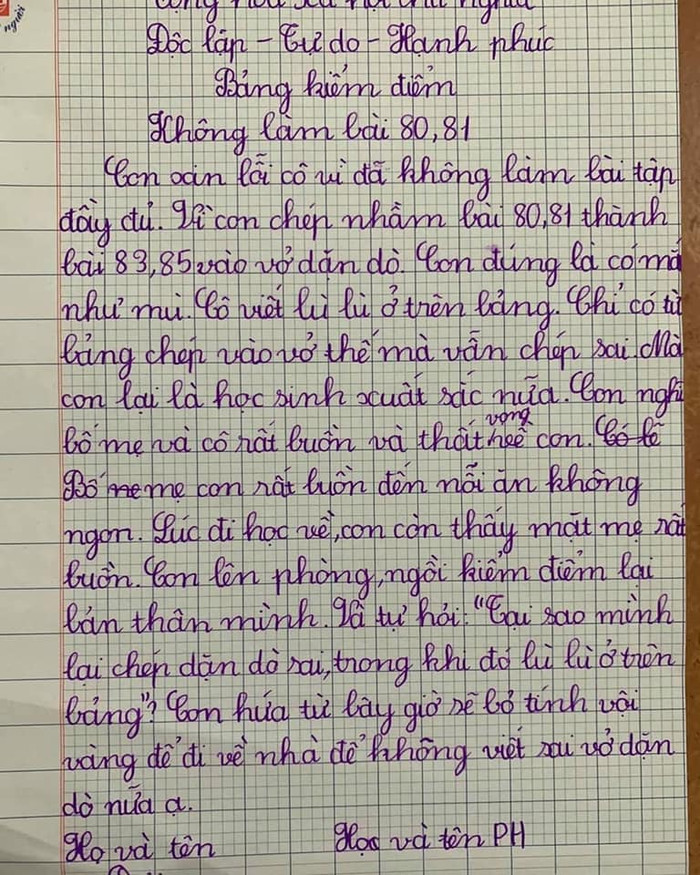 người
Cộng hòa xã hội chủ nghĩa
Độc lập - Tự do - Hạnh phúc
Bảng kiểm điểm
Không làm bài 80,81
Con xin lỗi cô vì đã không làm bài tập
đầy đủ. Vì con chép nhầm bài 80,81 thành
bài 83,85 vào vở dặn dò. Con đúng là có mắ
như mù. Cô viết lù lù ở trên bảng. Chỉ có từ
bảng chép vào vở thế mà vẫn chép sai. Mà
con lại là học sinh xuất sắc nữa. Con nghĩ
bố mẹ và cô rất buồn và thất vọng về con. Có lẽ
Bố me mẹ con rất buồn đến nỗi ăn không
ngon. Lúc đi học về, con còn thấy mặt mẹ rất
buồn. Con lên phòng, ngồi kiểm điểm lại
bản thân mình. Và tự hỏi: "Tại sao mình
lại chép dặn dò sai, trong khi đó lù lù ở trên
bảng"? Con hứa từ bây giờ sẽ bỏ tính vội
vàng để đi về nhà để không viết sai vở dặn
dò nữa ạ.
Họ và tên Họ và tên PH